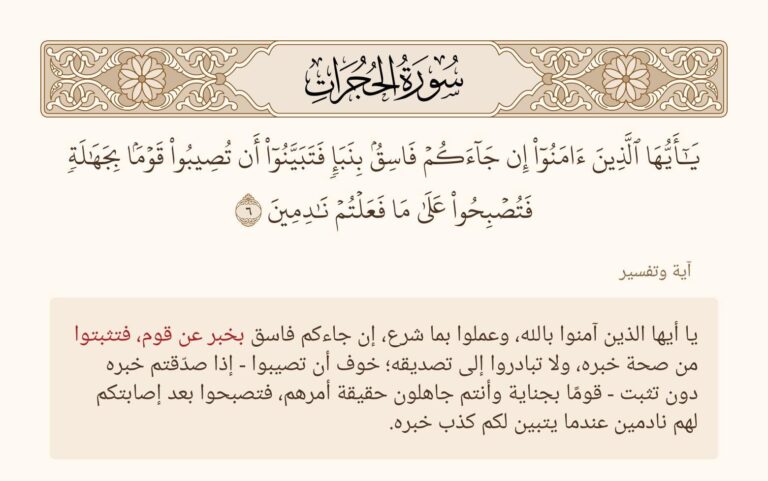 سُورَةُ الحُجُرَاتِ
يَـٰٓأَيُّهَا ٱلَّذِينَ ءَامَنُوٓا۟ إِن جَآءَكُمْ فَاسِقٌۢ بِنَبَإٍ فَتَبَيَّنُوٓا۟ أَن تُصِيبُوا۟ قَوْمًۢا بِجَهَـٰلَةٍ
فَتُصْبِحُوا۟ عَلَىٰ مَا فَعَلْتُمْ نَـٰدِمِينَ ٦
آية وتفسير
يا أيها الذين آمنوا بالله، وعملوا بما شرع، إن جاءكم فاسق بخبر عن قوم، فتثبتوا
من صحة خبره، ولا تبادروا إلى تصديقه؛ خوف أن تصيبوا - إذا صدّقتم خبره
دون تثبت - قومًا بجناية وأنتم جاهلون حقيقة أمرهم، فتصبحوا بعد إصابتكم
لهم نادمين عندما يتبين لكم كذب خبره.